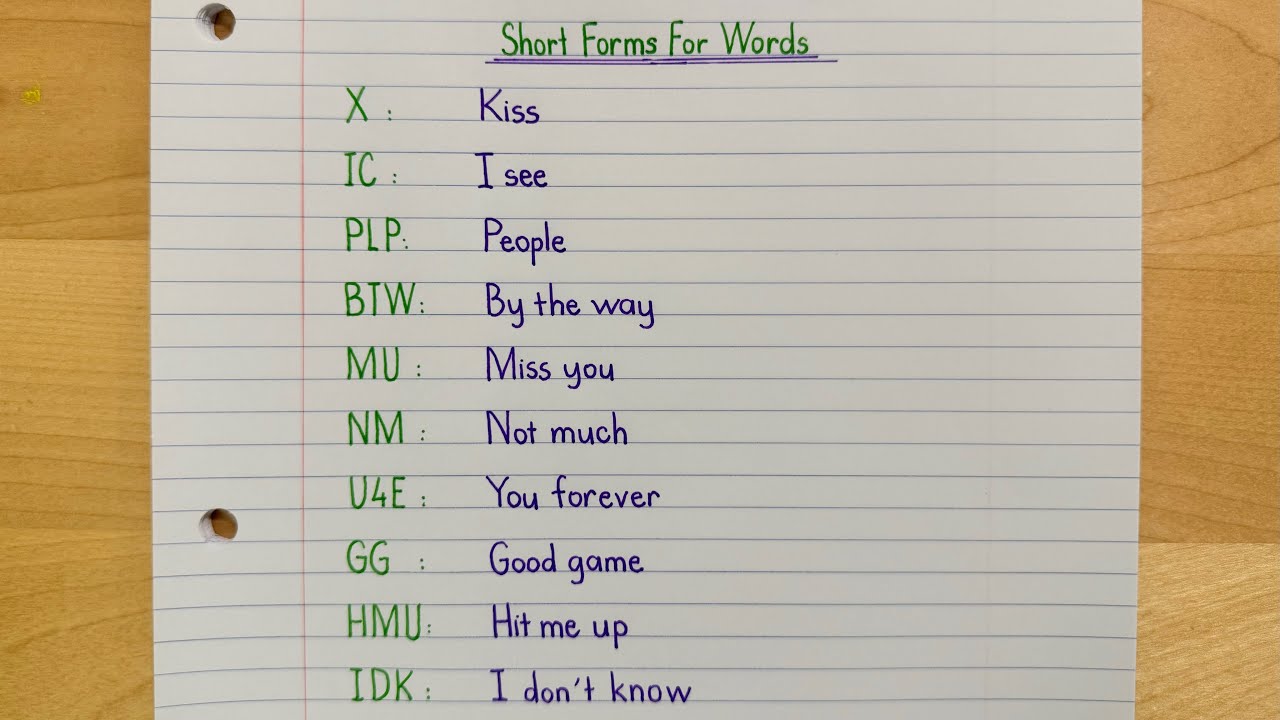 Short Forms For Words
X : Kiss
IC : I see
PLP: People
BTW: By the way
MU : Miss you
NM : Not much
U4E : You forever
GG : Good game
HMU: Hit me up
IDK : I don't know